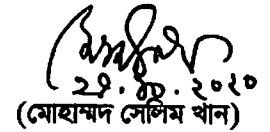 ২৯.১০.২০২০
(মোহাম্মদ সেলিম খান)